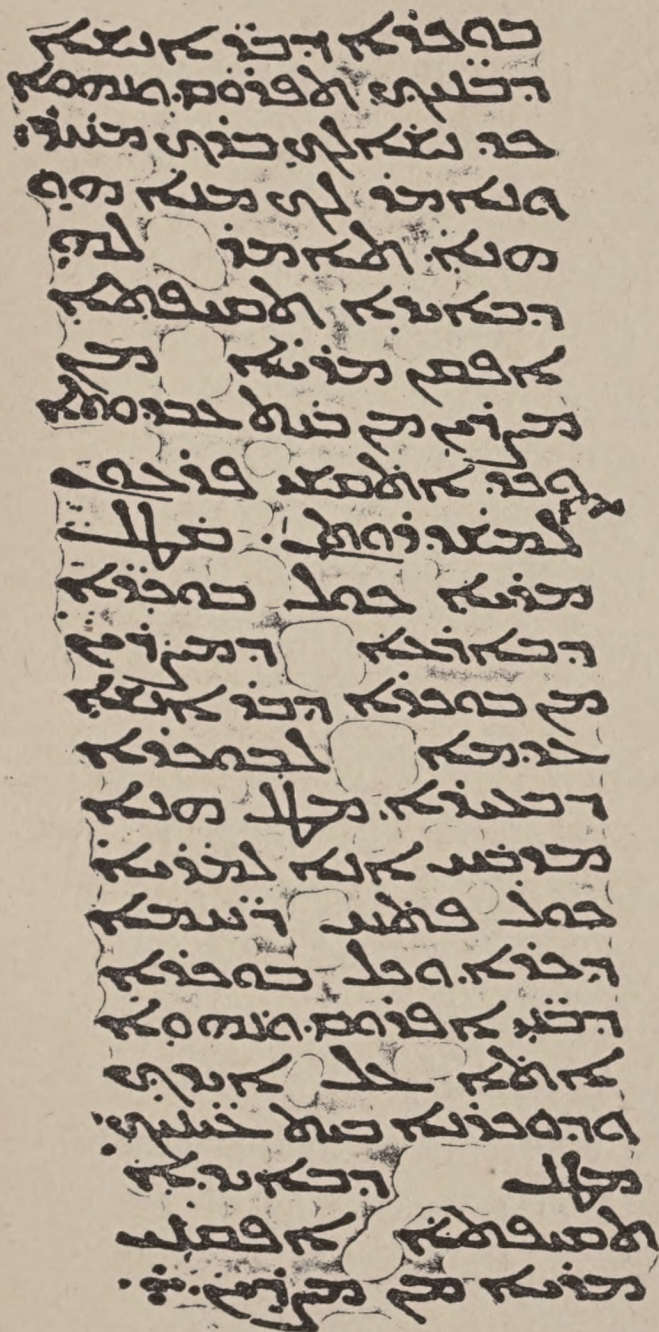 ܒܘܟܪܐ ܕܒܪ ܐܢܫܐ
ܕܒܢܝܟ ܬܦܪܘܩ. ܘܝܗܘܐ
ܟܕ ܢܫܐܠܟ ܒܪܟ ܡܚܪ.
ܘܢܐܡܪ ܠܟ ܡܢܐ ܗܘ
ܗܢܐ. ܬܐܡܪ ܠܗ
ܕܒܐܝܕܐ ܬܩܝܦܬܐ
ܐܦܩܢ ܡܪܝܐ ܡܢ
ܡܨܪܝܢ ܡܢ ܒܝܬ ܥܒܕܘܬܐ
ܘܟܕ ܐܬܩܫܝ ܦܪܥܘܢ
ܠܡܫܕܪܘܬܢ. ܩܛܠ
ܡܪܝܐ ܟܘܠ ܒܘܟܪܐ
ܕܒܐܪܥܐ ܕܡܨܪܝܢ
ܡܢ ܒܘܟܪܐ ܕܒܪ ܐܢܫܐ
ܥܕܡܐ ܠܒܘܟܪܐ
ܕܒܥܝܪܐ. ܡܛܠ ܗܢܐ
ܡܕܒܚ ܐܢܐ ܠܡܪܝܐ
ܟܘܠ ܦܬܚ ܪܚܡܐ
ܕܟܪܐ. ܘܟܠ ܒܘܟܪܐ
ܕܒܢܝ ܐܦܪܘܩ. ܘܝܗܘܐ
ܐܬܐ ܥܠ ܐܝܕܟ
ܘܕܘܟܪܢܐ ܒܝܬ ܥܝܢܝܟ.
ܡܛܠ ܕܒܐܝܕܐ
ܬܩܝܦܬܐ ܐܦܩܢ
ܡܪܝܐ ܡܢ ܡܨܪܝܢ.